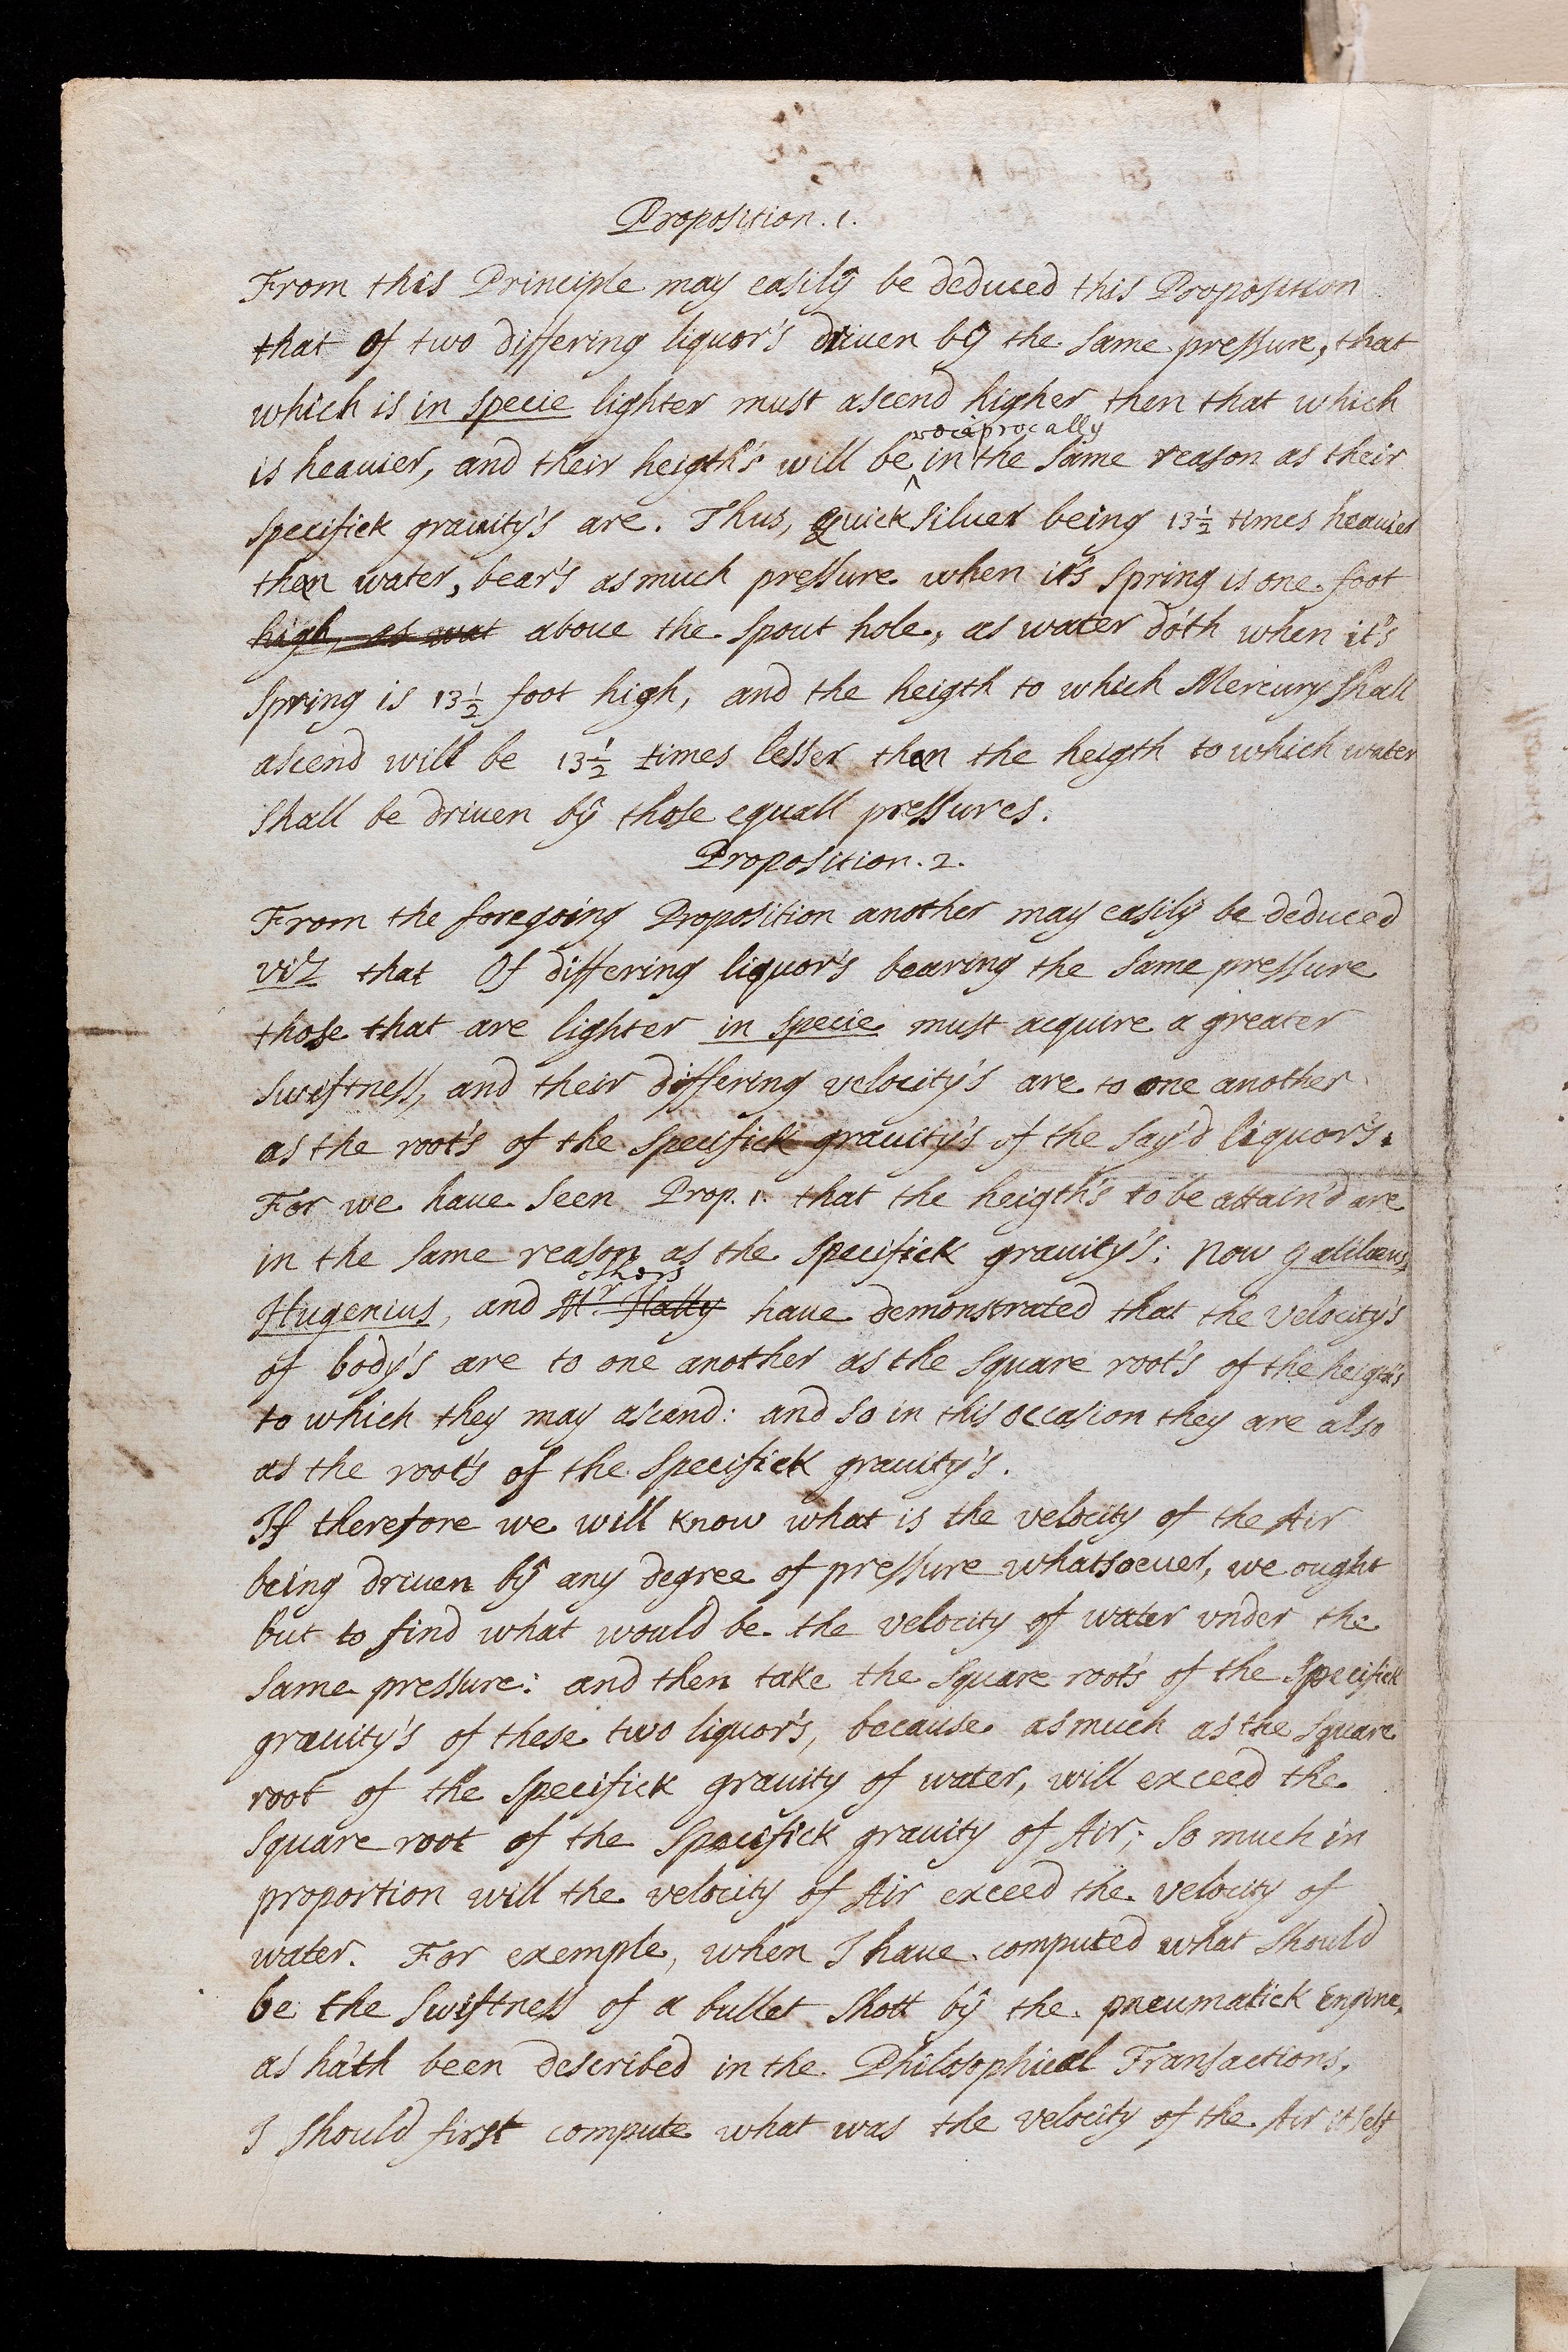 Proposition. 1.
From this Principle may easily be deduced this Proposition
that of two differing liquor's driuen by the same pressure, that
which is in specie lighter must ascend higher then that which
reciprocally
is heauier, and their heigth's will be ^ in the same reason as their
specifick grauity's are. Thus, quick siluer being 13½ times heauier
then water, bear's as much pressure when it's spring is one foot
high, as wat aboue the spout hole, as water do'th when it's
spring is 13½ foot high, and the heigth to which Mercury shall
ascend will be 13½ times lesser then the heigth to which water
shall be driuen by those equall pressures.
Proposition. 2.
From the foregoing Proposition another may easily be deduced
viz that Of differing liquor's bearing the same pressure
those that are lighter in specie must acquire a greater
swiftness, and their differing velocity's are to one another
as the root's of the specifick grauity's of the say'd liquor's.
For we haue seen Prop. 1. that the heigth's to be attain'd are
in the same reason as the specifick grauity's: now galilæus,
others
Hugenius, and Mr. Hally haue demonstrated that the velocity's
of body's are to one another as the square root's of the heigth's
to which they may ascend: and so in this occasion they are also
as the root's of the specifick grauity's.
If therefore we will know what is the velocity of the Air
being driuen by any degree of pressure whatsoeuer, we ought
but to find what would be the velocity of water vnder the
same pressure: and then take the square root's of the specifick
grauity's of these two liquor's, because as much as the square
root of the specifick grauity of water, will exceed the
square root of the specifick grauity of Air; so much in
proportion will the velocity of Air exceed the velocity of
water. For exemple, when I haue computed what should
be the swiftness of a bullet shott by the pneumatick Engine,
as ha'th been described in the Philosophical Transactions,
I should first compute what was the velocity of the Air it self